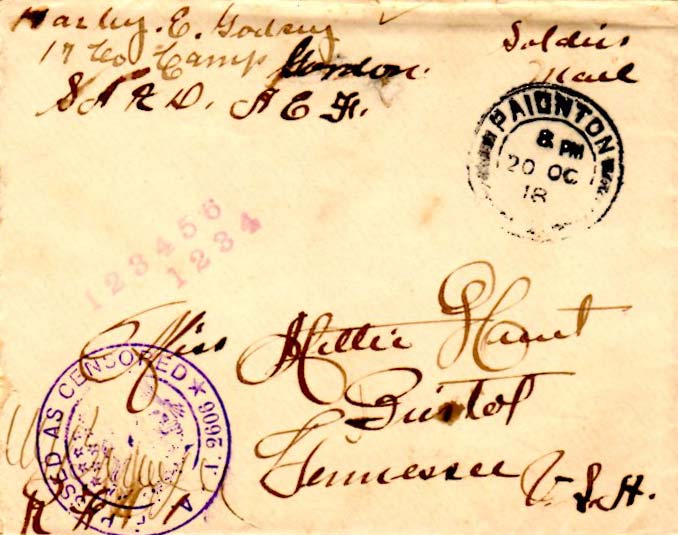 Harley. E. Godsey
17 Co Camp Gordon.
S A R D. A E F.
Soldiers
Mail
PAIGNTON
8 PM
20 OC
18
123456
1234
Miss Hattie Hunt
Bristol
Tennessee U.S.A.
PASSED AS CENSORED ★ A. 2606